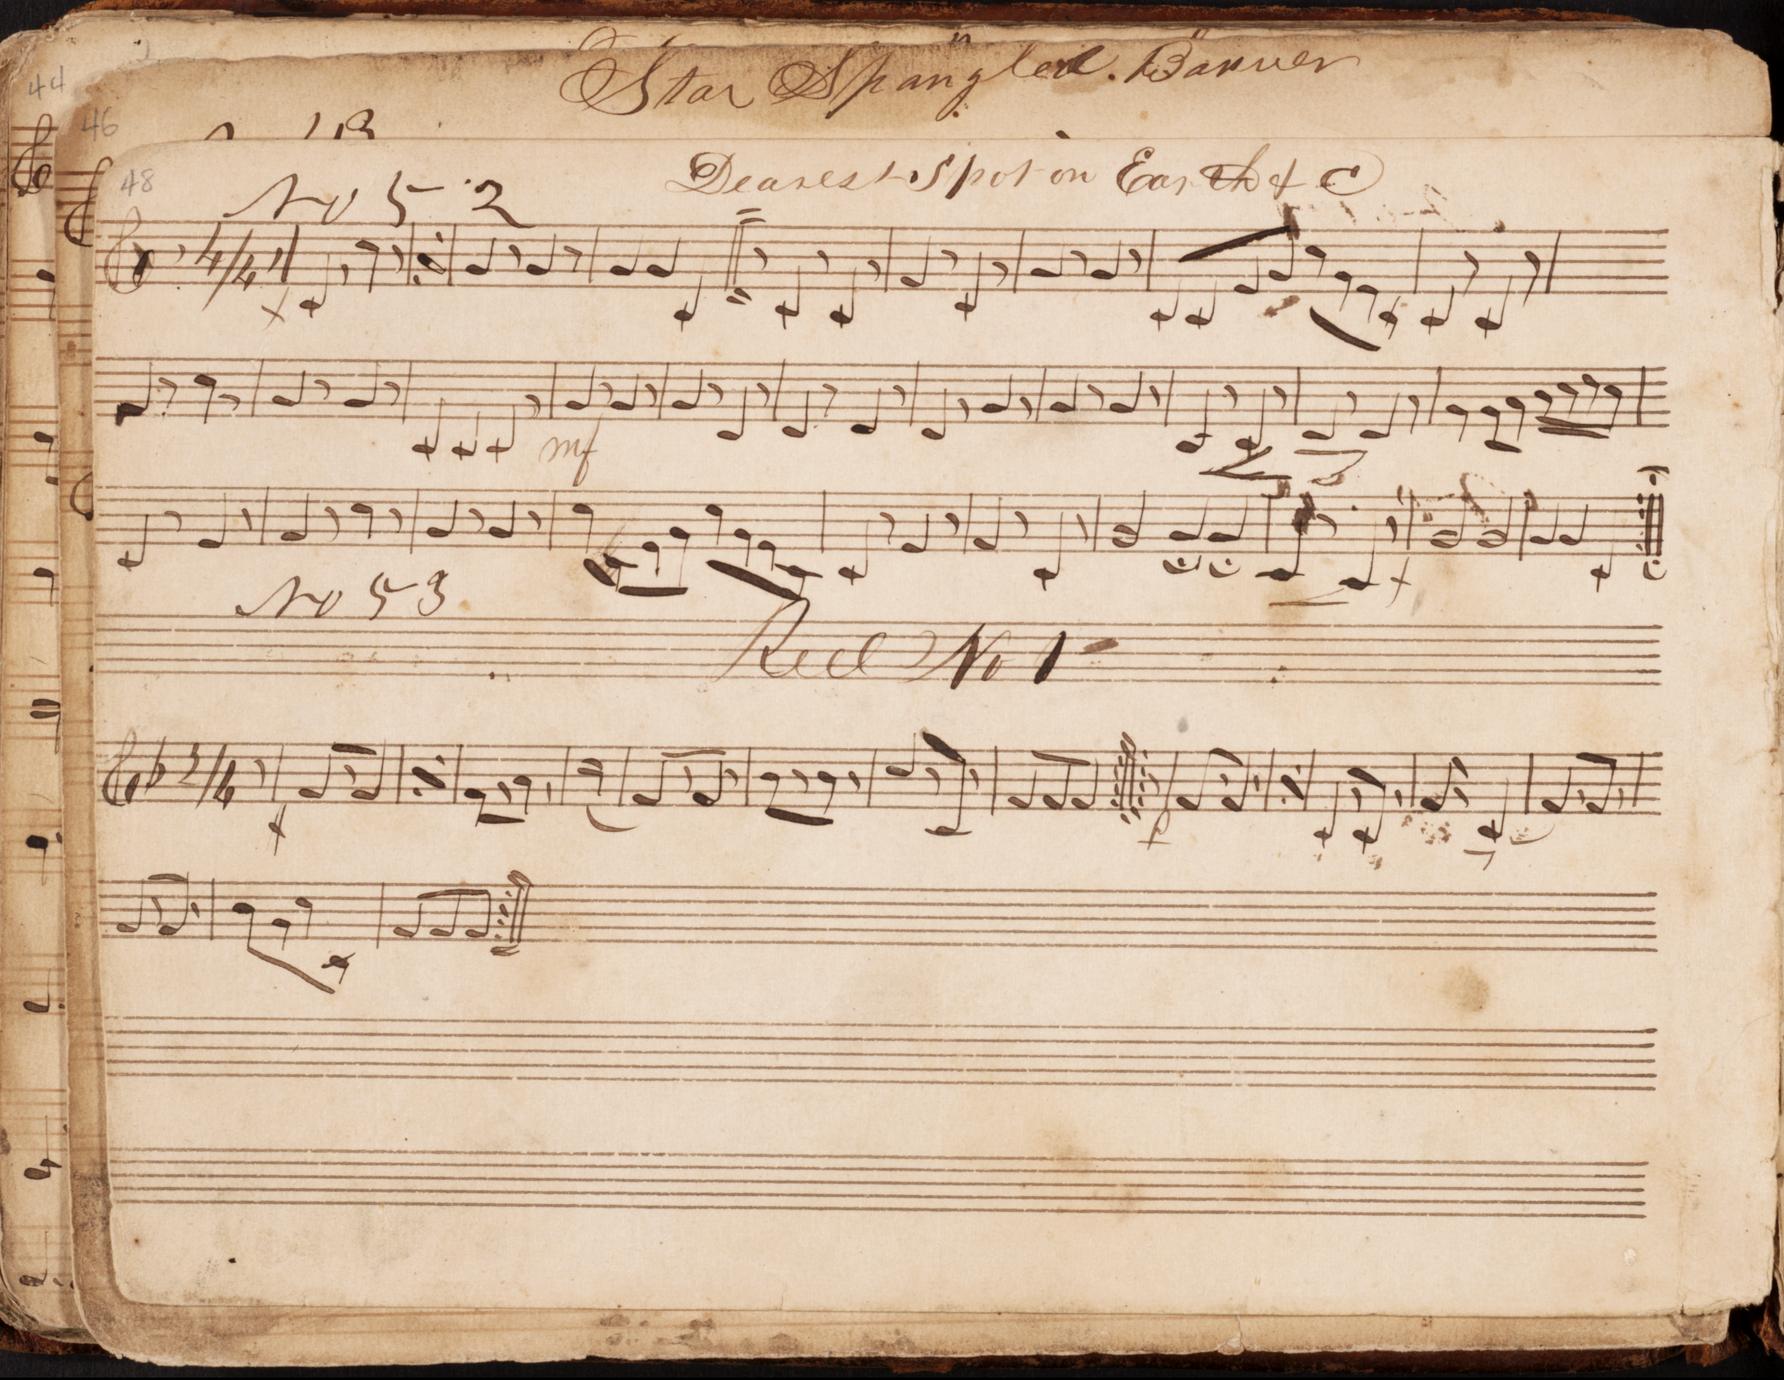 44
Star Spangled Banner
46
48
Dearest Spot on Earth & C
No 52
4/4
mf
No 53
Reel No 1
2/4